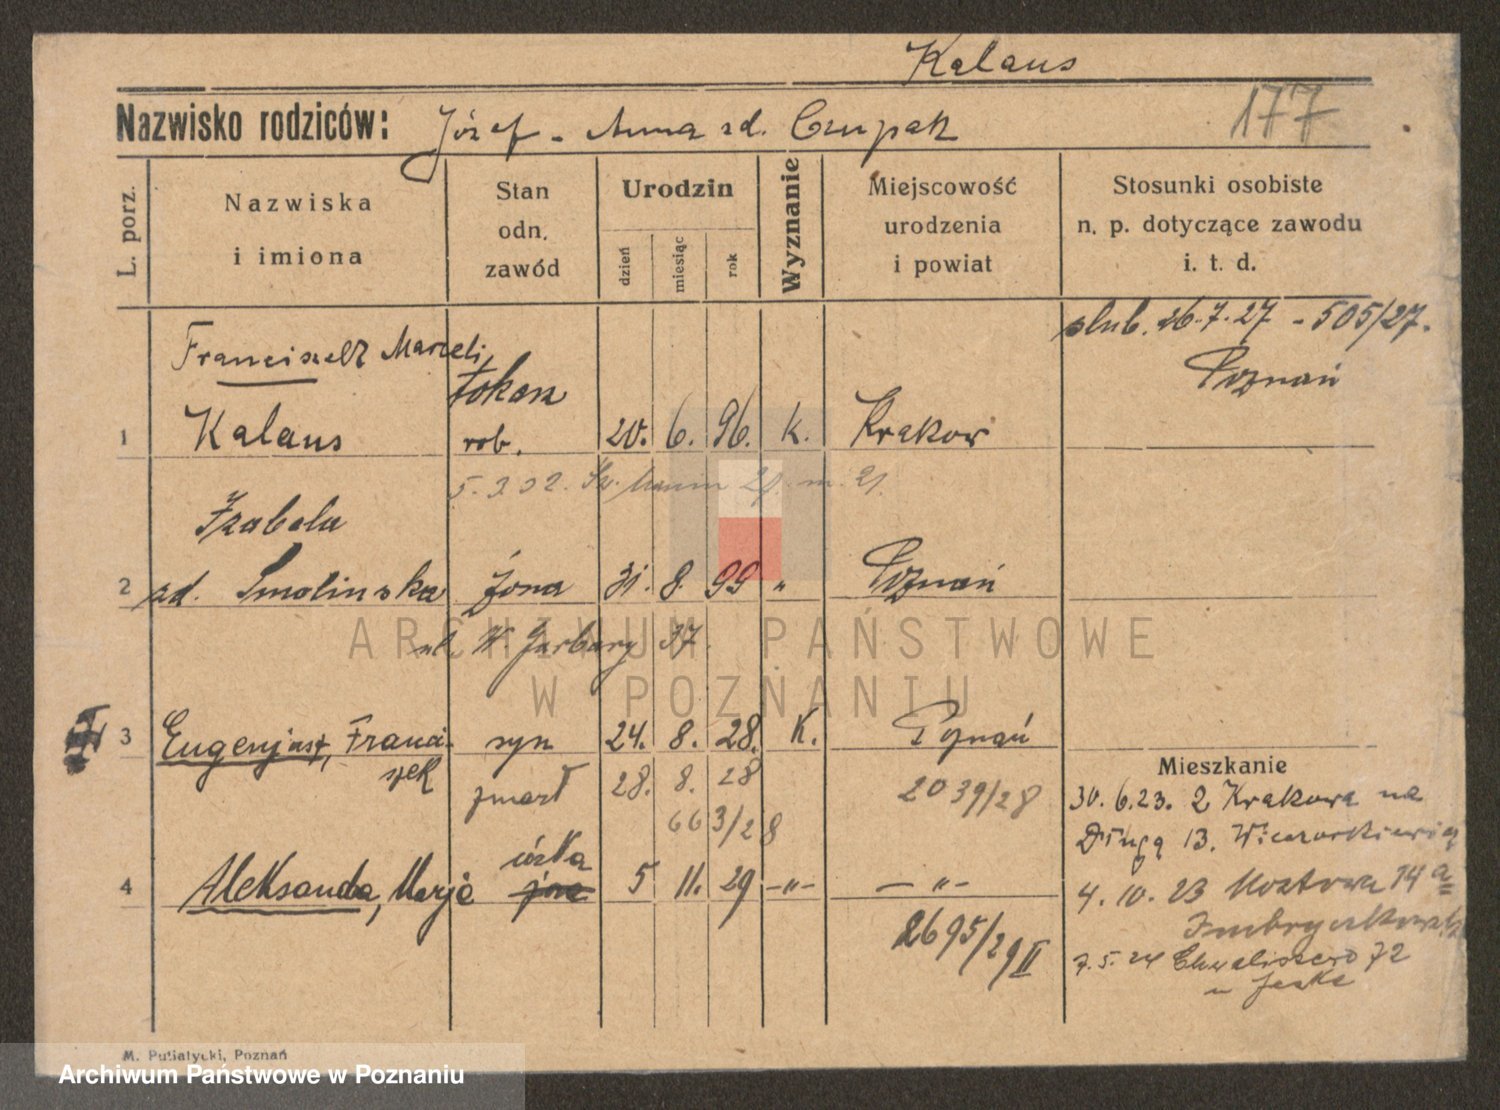 Kalaus
177
Nazwisko rodziców: Józef - Anna zd. Czupak
L. porz.
Nazwiska i imiona
Stan odn. zawód
Urodzin
dzień
miesiąc
rok
Wyznanie
Miejscowość urodzenia i powiat
Stosunki osobiste n. p. dotyczące zawodu i. t. d.
ślub. 26.7.27 - 505/27.
Poznań
Franciszek Marceli,
tokarz
1 Kalaus rob. 20. 6. 96. k. Krakow
5.3.02.
Izabela
2 zd. Smolinska żona 31. 8. 99 " Poznań
ul. W. Garbary 37.
3 Eugenjusz, Franci- syn 24. 8. 28. K. Poznań
szek
zmarł 28. 8. 28 2039/28
663/28
córka
4 Aleksandra, Marja 5 11. 29 -"- - "-
2695/29 II
Mieszkanie
30.6.23. z Krakowa na
Długą 13.
4.10.23 14a
7.5.24 Chwaliszewo 72
u Jeske
M. Putiatycki, Poznań
ARCHIWUM PAŃSTWOWE
W POZNANIU
Archiwum Państwowe w Poznaniu